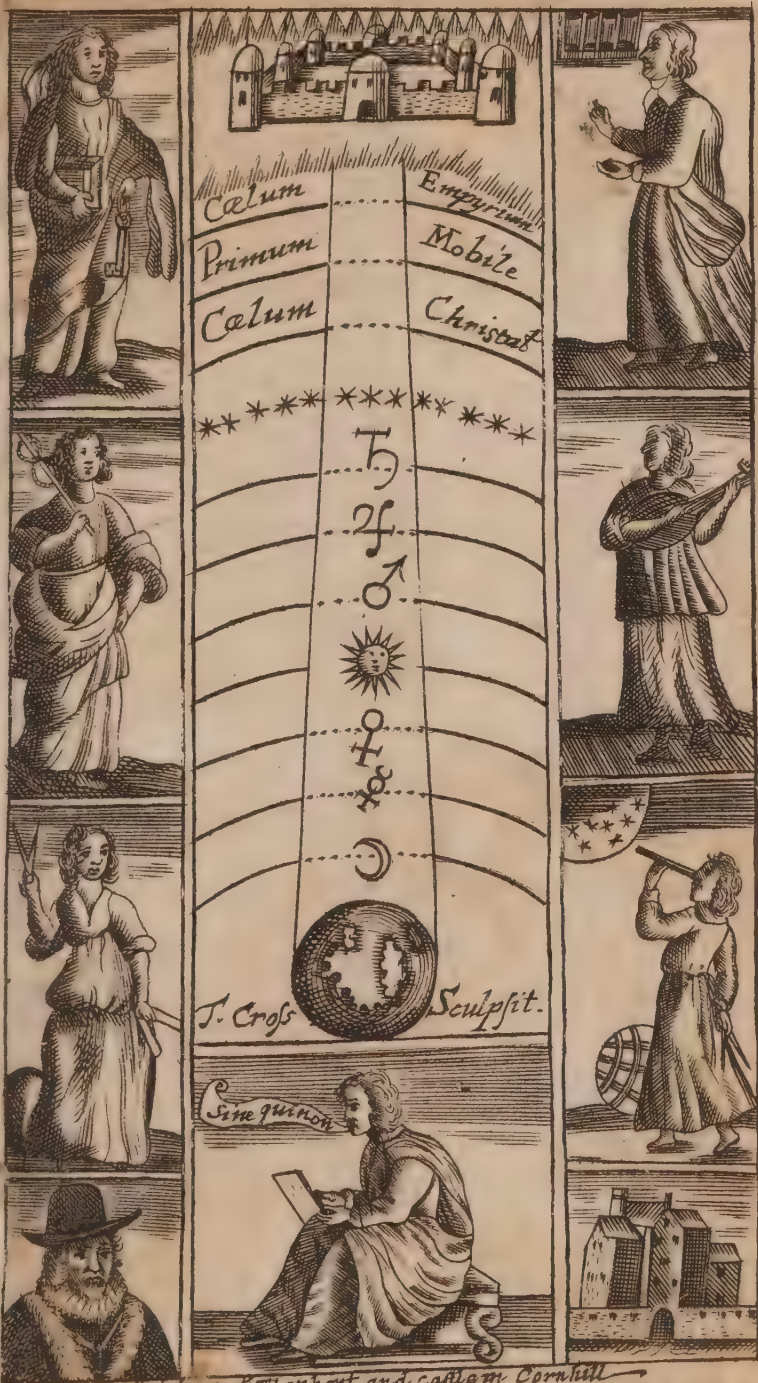 Cælum Empyrium
Primum Mobile
Cælum Christat
T. Cross Sculpsit.
Sine quinon
and Castle in Cornhill